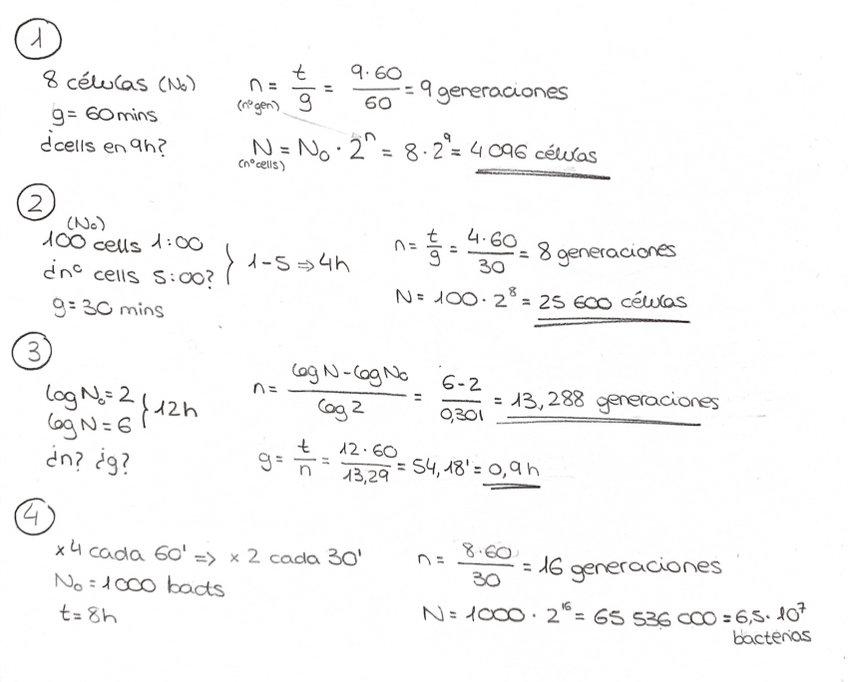 1
8 células (N₀)
g = 60 mins
¿cells en 9h?
n = t/g = 9·60/60 = 9 generaciones
(nºgen)
N = N₀ · 2ⁿ = 8 · 2⁹ = 4 096 células
(nºcells)
2
(N₀)
100 cells 1:00
¿nº cells 5:00?
} 1-5 ⇒ 4h
g = 30 mins
n = t/g = 4·60/30 = 8 generaciones
N = 100 · 2⁸ = 25 600 células
3
log N₀ = 2
log N = 6
} 12h
¿n? ¿g?
n = log N - log N₀/log 2 = 6-2/0,301 = 13,288 generaciones
g = t/n = 12·60/13,29 = 54,18' = 0,9 h
4
x4 cada 60' => x 2 cada 30'
N₀ = 1000 bacts
t = 8h
n = 8·60/30 = 16 generaciones
N = 1000 · 2¹⁶ = 65 536 000 = 6,5·10⁷
bacterias